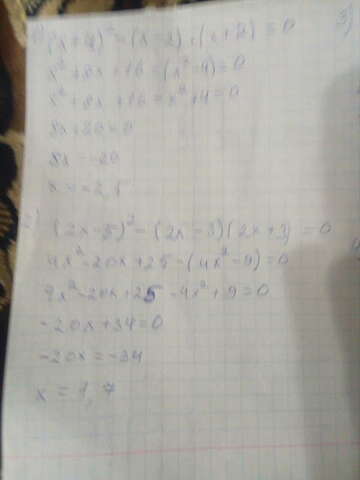 1) (x+4)² - (x-2)·(x+2) = 0
x² + 8x + 16 - (x² - 4) = 0
x² + 8x + 16 - x² + 4 = 0
8x + 20 = 0
8x = -20
x = -2,5
2) (2x-5)² - (2x-3)(2x+3) = 0
4x² - 20x + 25 - (4x² - 9) = 0
4x² - 20x + 25 - 4x² + 9 = 0
-20x + 34 = 0
-20x = -34
x = 1,7
3)